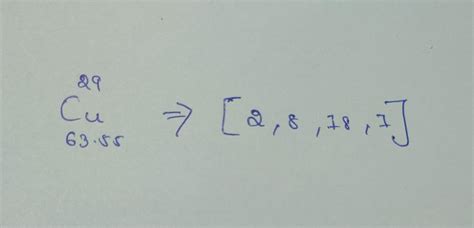 29
Cu ⇒ [2, 8, 18, 1]
63.55